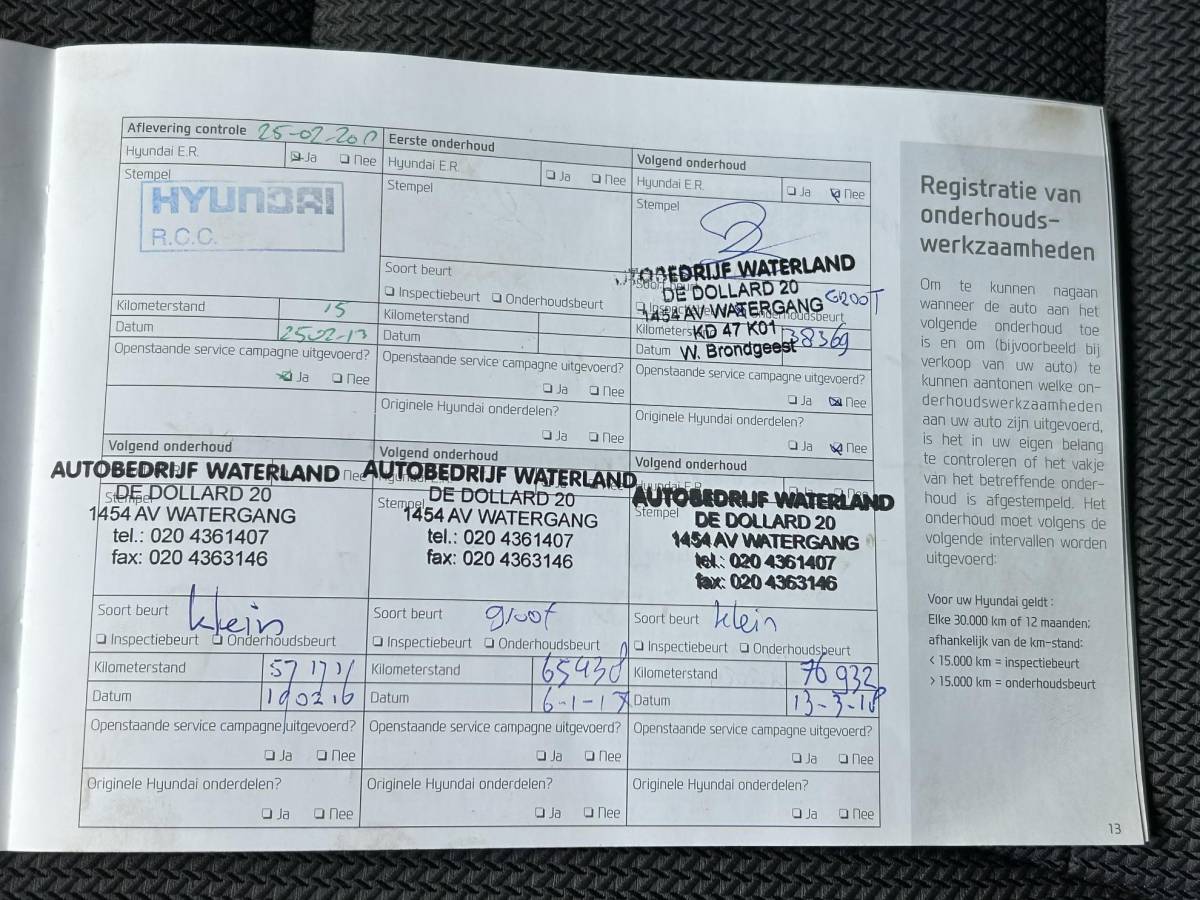 Aflevering controle
Hyundai E.R. Ja Nee
Stempel
HYUNDAI
R.C.C.
Kilometerstand 15
Datum 25 02-13
Openstaande service campagne uitgevoerd?
Ja Nee
Eerste onderhoud
Hyundai E.R. Ja Nee
Stempel
Soort beurt
Inspectiebeurt Onderhoudsbeurt
Kilometerstand
Datum
Openstaande service campagne uitgevoerd?
Ja Nee
Originele Hyundai onderdelen?
Ja Nee
Volgend onderhoud
Hyundai E.R. Ja Nee
Stempel
2
AUTOBEDRIJF WATERLAND
DE DOLLARD 20
1454 AV WATERGANG GROOT
KD 47 K01
W. Brondgeest
Kilometerstand 38369
Datum
Openstaande service campagne uitgevoerd?
Ja Nee
Originele Hyundai onderdelen?
Ja Nee
Volgend onderhoud
Nee
AUTOBEDRIJF WATERLAND
Stempel
DE DOLLARD 20
1454 AV WATERGANG
tel.: 020 4361407
fax: 020 4363146
Soort beurt klein
Inspectiebeurt Onderhoudsbeurt
Kilometerstand
Datum 100216
Openstaande service campagne uitgevoerd?
Ja Nee
Originele Hyundai onderdelen?
Ja Nee
Volgend onderhoud
AUTOBEDRIJF WATERLAND
Stempel
DE DOLLARD 20
1454 AV WATERGANG
tel.: 020 4361407
fax: 020 4363146
Soort beurt groot
Inspectiebeurt Onderhoudsbeurt
Kilometerstand 65938
Datum 6-1-17
Openstaande service campagne uitgevoerd?
Ja Nee
Originele Hyundai onderdelen?
Ja Nee
Volgend onderhoud
AUTOBEDRIJF WATERLAND
Stempel
DE DOLLARD 20
1454 AV WATERGANG
tel.: 020 4361407
fax: 020 4363146
Soort beurt klein
Inspectiebeurt Onderhoudsbeurt
Kilometerstand 76932
Datum 13-3-18
Openstaande service campagne uitgevoerd?
Ja Nee
Originele Hyundai onderdelen?
Ja Nee
Registratie van
onderhouds-
werkzaamheden
Om te kunnen nagaan
wanneer de auto aan het
volgende onderhoud toe
is en om (bijvoorbeeld bij
verkoop van uw auto) te
kunnen aantonen welke on-
derhoudswerkzaamheden
aan uw auto zijn uitgevoerd,
is het in uw eigen belang
te controleren of het vakje
van het betreffende onder-
houd is afgestempeld. Het
onderhoud moet volgens de
volgende intervallen worden
uitgevoerd:
Voor uw Hyundai geldt :
Elke 30.000 km of 12 maanden;
afhankelijk van de km-stand:
< 15.000 km = inspectiebeurt
> 15.000 km = onderhoudsbeurt
13